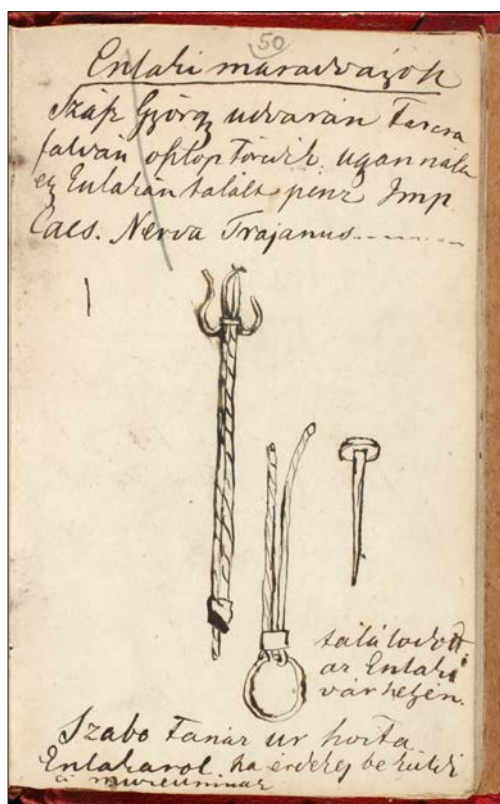 50
Enlaki maradványok
Szász György udvarán Tarcsa
falván oszlop töredék. ugan nála
egy Enlakán talált pénz Imp.
Caes. Nerva Trajanus
találtatott
az Enlaki
vár helyén.
Szabo Tanár ur hozta
Enlakarol ha érdekes be küldi
a muzeumnak